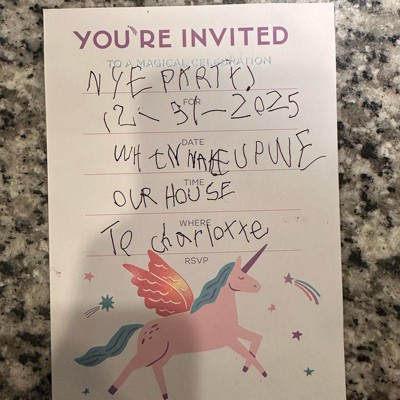 YOU'RE INVITED
TO A MAGICAL CELEBRATION
NYE PARTY!
FOR
12-31-2025
DATE
WHEN WAKE UP
TIME
OUR HOUSE
WHERE
To charlotte
RSVP